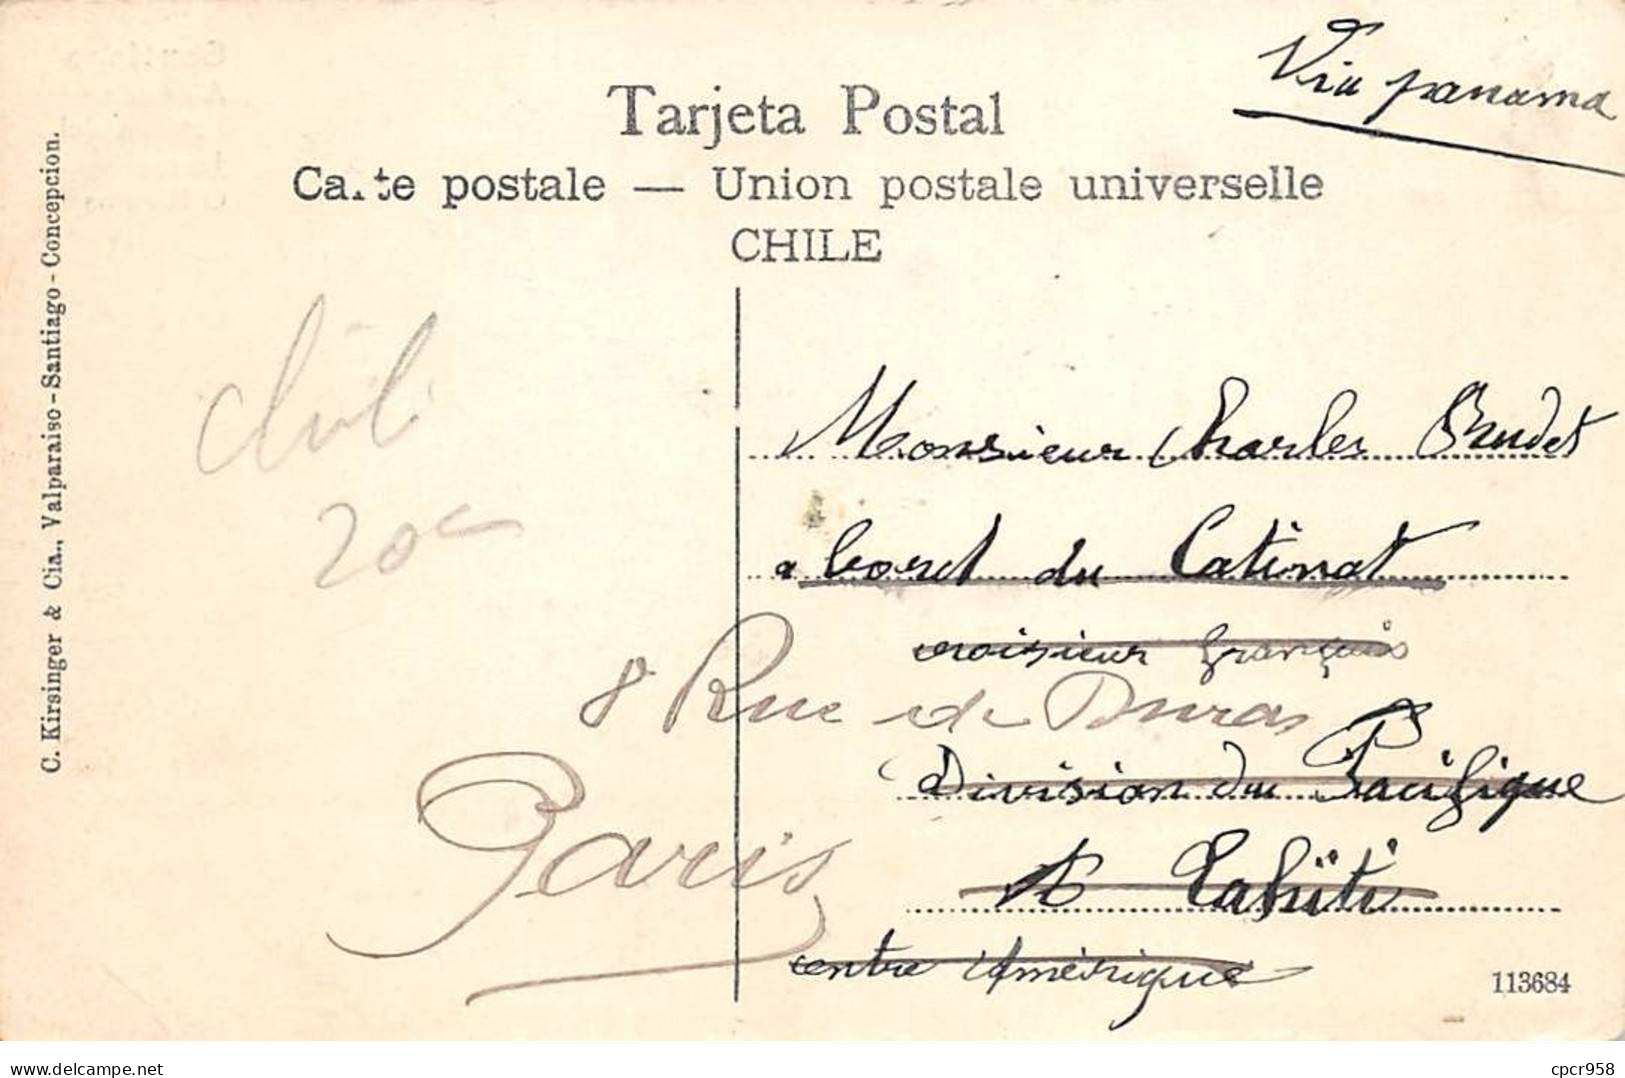 Via panama
Tarjeta Postal
Carte postale — Union postale universelle
CHILE
C. Kirsinger & Cia., Valparaiso - Santiago - Concepcion.
Chili
20c
Monsieur Charles Budet
a bord du Catinat
croisieur français
8 Rue de Duras
Division du Pacifique
Paris
A Tahïti
centre Amérique
113684
delcampe.net
cpcr958